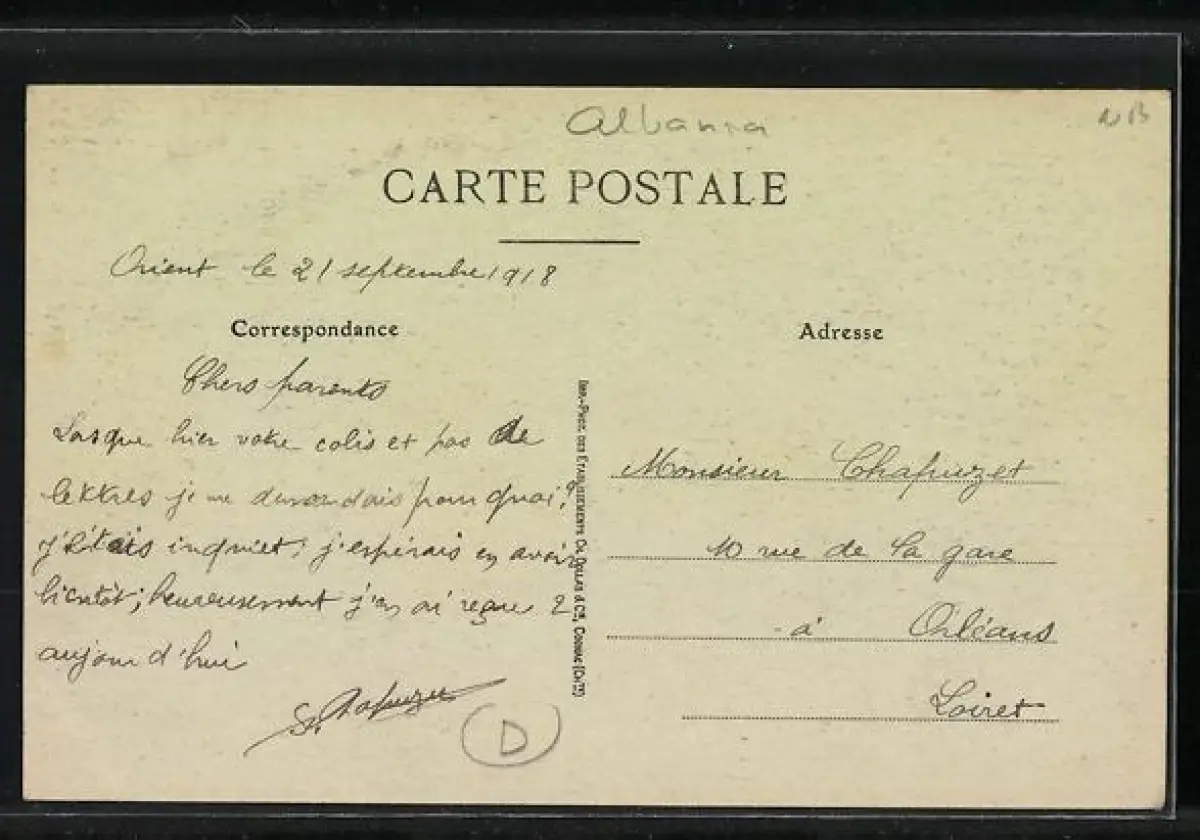 Albania
NB
CARTE POSTALE
Orient le 21 septembre 1918
Correspondance
Adresse
Chers parents
hier votre colis et pas de
lettres je me demandais pourquoi?
j'étais inquiet; j'espérais en avoir
bientôt; heureusement j'en ai reçu 2
aujourd'hui
Chapuzet
D
IMP.-PHOT. DES ETABLISSEMENTS CH. COLLAS & Cie, COGNAC (Chte)
Monsieur Chapuzet
10 rue de la gare
à Orléans
Loiret